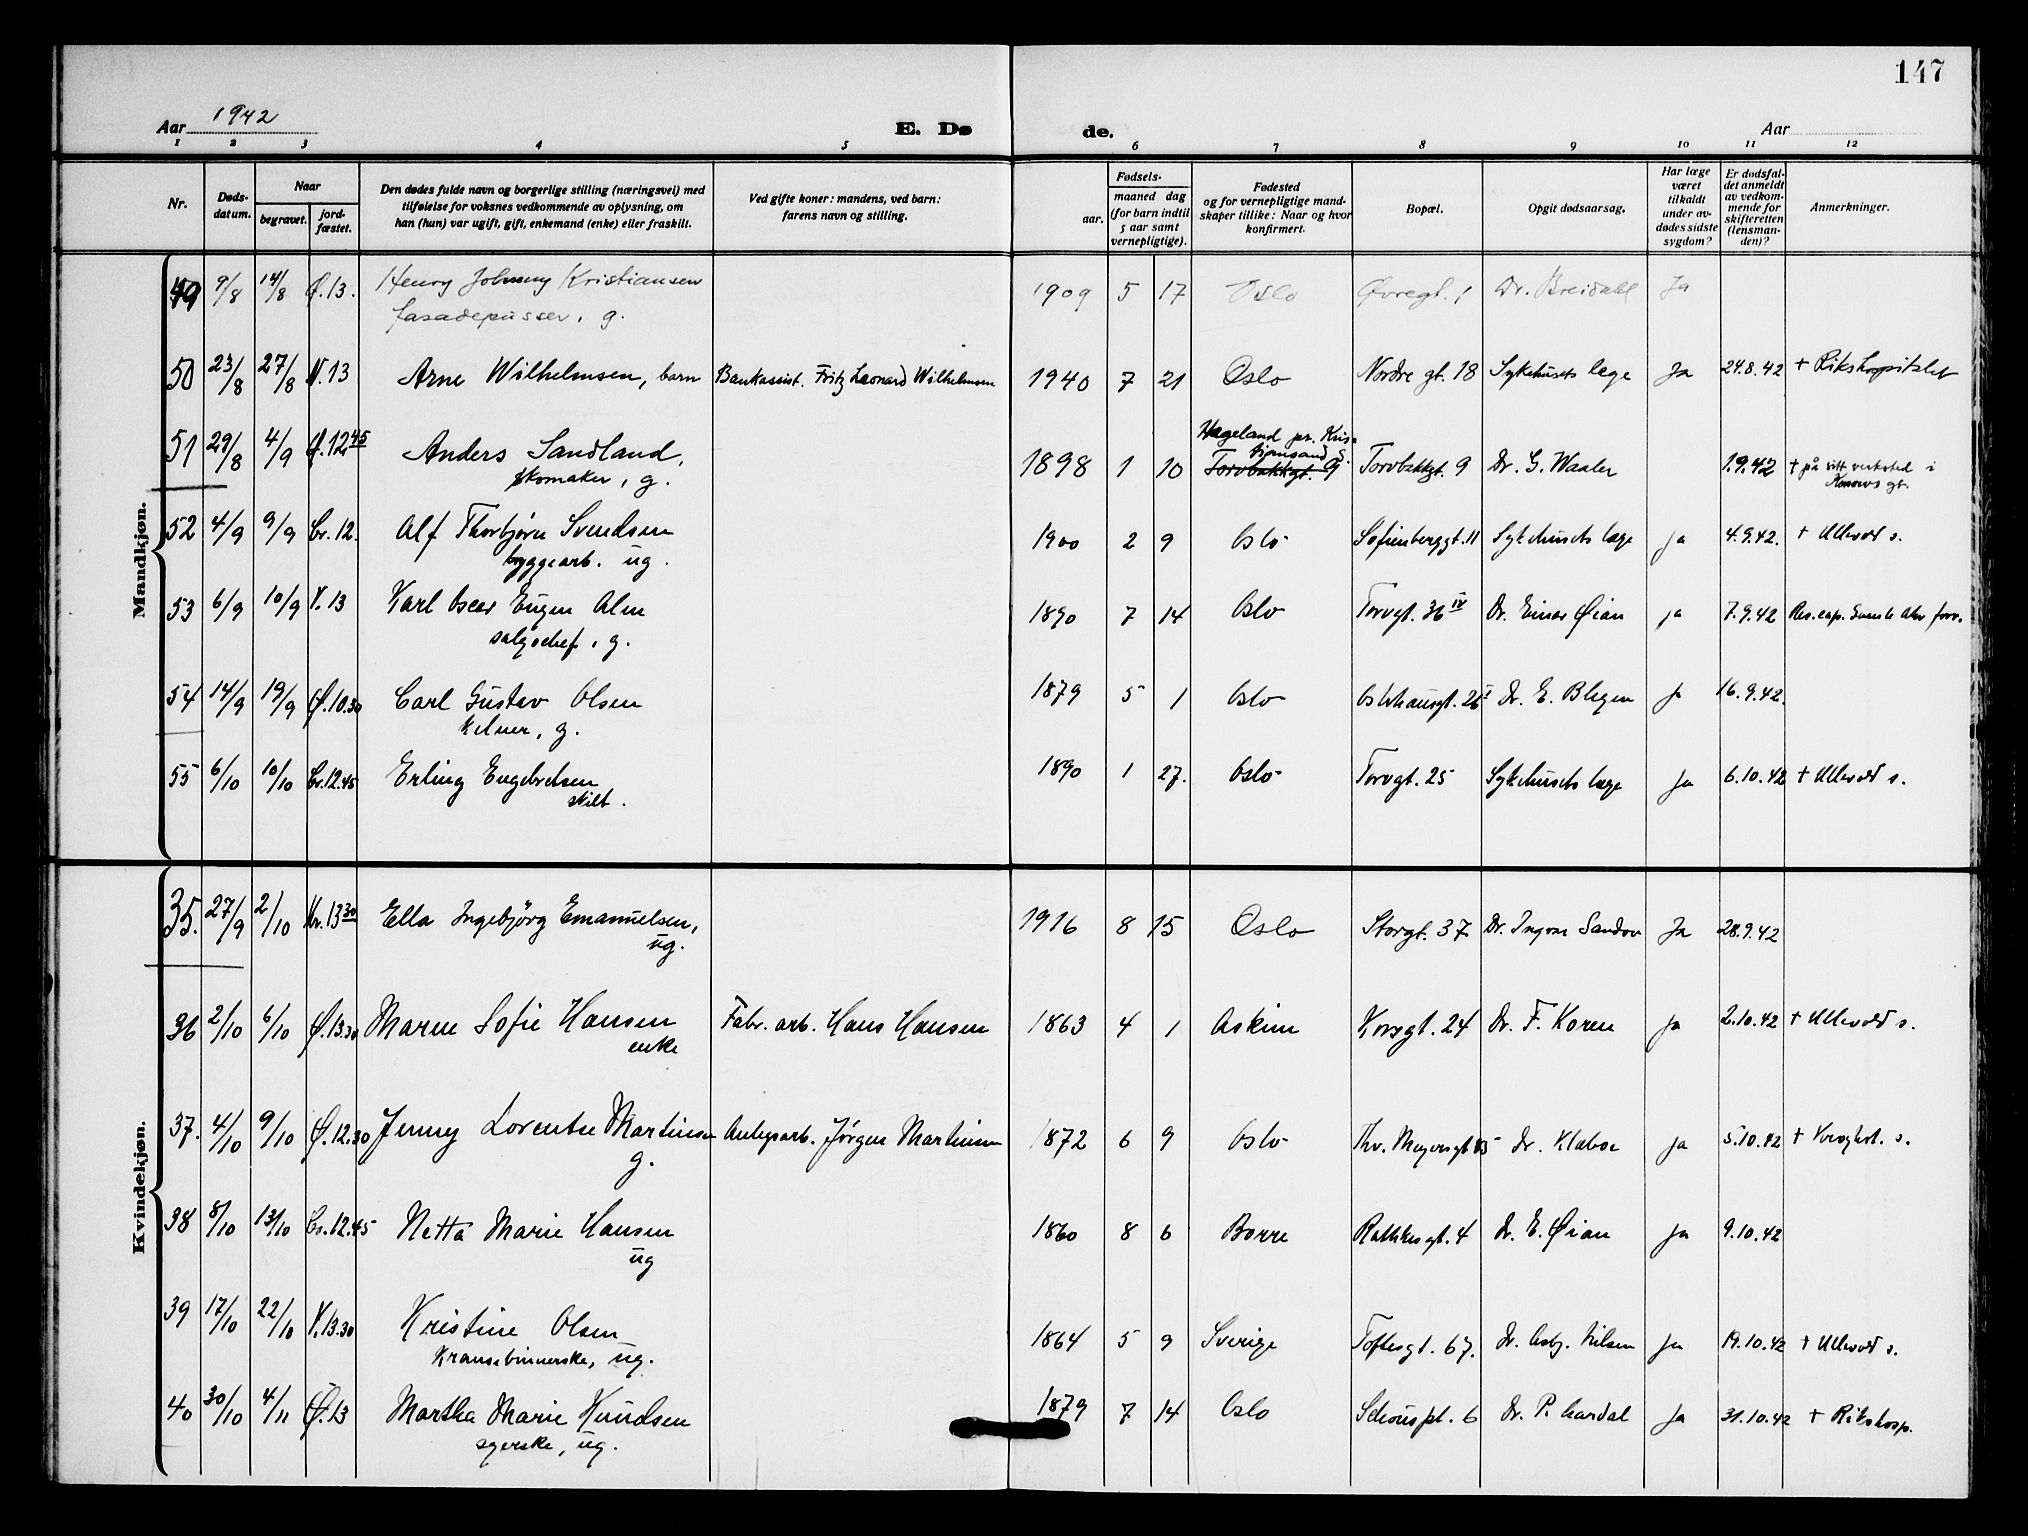 147
Aar 1942 E. Døde. Aar
1 2 3 4 5 6 7 8 9 10 11 12
Nr. Døds-datum. Naar begravet. jord-fæstet. Den dødes fulde navn og borgerlige stilling (næringsvei) med tilføielse for voksnes vedkommende av oplysning, om han (hun) var ugift, gift, enkemand (enke) eller fraskilt. Ved gifte koner: mandens, ved barn: farens navn og stilling. Fødsels- aar. maaned dag (for barn indtil 5 aar samt vernepligtige). Fødested og for vernepligtige mandskaper tillike: Naar og hvor konfirmert. Bopæl. Opgit dødsaarsag. Har læge været tilkaldt under avdødes sidste sygdom? Er dødsfaldet anmeldt av vedkommende for skifteretten (lensmanden)? Anmerkninger.
Mandkjøn.
49 9/8 14/8 Ø.13. Henry Johnny Kristiansen 1909 5 17 Oslo Øvregt. 1 Dr. Breidahl Ja
fasadepusser, g.
50 23/8 27/8 N.13 Arne Wilhelmsen, barn Bankassist. Fritz Leonard Wilhelmsen 1940 7 21 Oslo Nordre gt. 18 Sykehusets lege Ja 24.8.42 + Rikshospitalet
51 29/8 4/9 Ø.12.45 Anders Sandland, 1898 1 10 Hægeland pr. Kristiansand S. Torvbakkgt. 9 Torvbakkgt. 9 Dr. G. Waaler 1.9.42 + på sitt verksted i
skomaker, g. gt.
52 4/9 9/9 Cr.12. Alf Thorbjørn Svendsen 1900 2 9 Oslo Sofienberggt. 11 Sykehusets læge Ja 4.9.42. + Ullevål s.
byggearb. ug.
53 6/9 10/9 V.13 Karl Oscar Eugen Alm 1890 7 14 Oslo Torvgt. 36 IV Dr. Einar Øian ja 7.9.42 Res. cap. Gamle Aker forr.
salgschef, g.
54 14/9 19/9 Ø.10.30 Carl Gustav Olsen 1879 5 1 Oslo Oslohausgt. 26 I Dr. E. Blegen Ja 16.9.42.
Kelner, g.
55 6/10 10/10 Cr.12.45 Erling Engebretsen 1890 1 27. Oslo Torvgt. 25 Sykehusets læge Ja 6.10.42 + Ullevål s.
skilt.
Kvindekjøn.
35. 27/9 2/10 Kr.13 30 Ella Ingebjörg Emanuelsen, 1916 8 15 Oslo Storgt. 37 Dr. Ingvar Sandov Ja 28.9.42
ug.
36 2/10 6/10 Ø.13.30 Maren Sofie Hansen Fabr. arb. Hans Hansen 1863 4 1 Askim Korsgt. 24 Dr. F. Koren Ja 2.10.42 + Ullevål s.
enke
37. 4/10 9/10 Ø.12.30 Jenny Lorentse Martinsen Anlegsarb. Jörgen Martinsen 1872 6 9 Oslo Thv. Meyersgt 85 Dr. Klaboe Ja 5.10.42 + Kroghst. s.
g.
38 8/10 13/10 Cr.12.45 Netta Marie Hansen 1860 8 6 Borre Rathkesgt. 4 Dr. E. Øian Ja 9.10.42
ug
39 17/10 22/10 V.13.30 Kristine Olsen 1864 5 9 Sverige Toftesgt. 67. Dr. Asbj. Nilsen Ja 19.10.42 + Ullevål s.
Kransebinnerske, ug.
40 30/10 4/11 Ø.13 Martha Marie Knudsen 1879 7 14 Oslo Schouspl. 6 Dr. P. Aardal Ja 31.10.42 + Rikshosp.
syerske, ug.